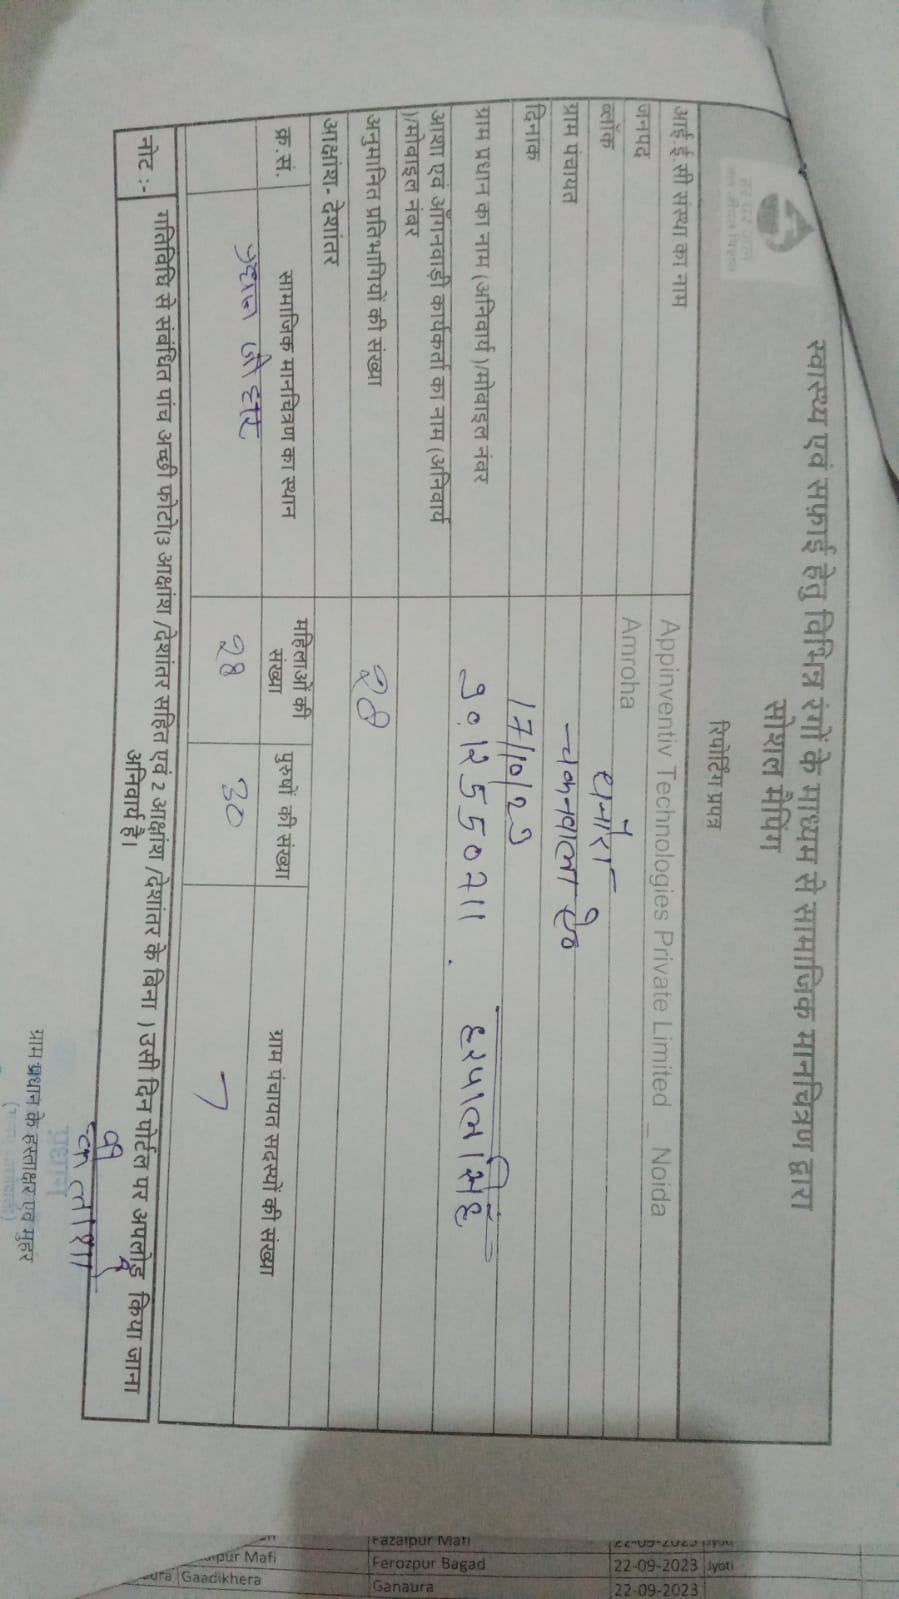 स्वास्थ्य एवं सफाई हेतु विभिन्न रंगो के माध्यम से सामाजिक मानचित्रण द्वारा
सोशल मैपिंग
रिपोर्टिंग प्रपत्र
आई.ई.सी संस्था का नाम Appinventiv Technologies Private Limited _ Noida
जनपद Amroha
ब्लॉक
ग्राम पंचायत
दिनांक
ग्राम प्रधान का नाम (अनिवार्य )/मोबाइल नंबर हरपाल सिंह
आशा एवं आँगनवाड़ी कार्यकर्ता का नाम (अनिवार्य
)/मोबाइल नंबर
अनुमानित प्रतिभागियों की संख्या
आक्षांश- देशांतर
क्र.सं. सामाजिक मानचित्रण का स्थान महिलाओं की संख्या पुरुषों की संख्या ग्राम पंचायत सदस्यों की संख्या
28 30 7
नोट :- गतिविधि से संबंधित पांच अच्छी फोटो(3 आक्षांश /देशांतर सहित एवं 2 आक्षांश /देशांतर के विना ) उसी दिन पोर्टल पर अपलोड़ किया जाना
अनिवार्य है।
प्रधान
ग्राम प्रधान के हस्ताक्षर एवं मुहर
Fazalpur Mafi 22-09-2023 Jyoti
Mafi Ferozpur Bagad 22-09-2023 Jyoti
Gaadikhera Ganaura 22-09-2023